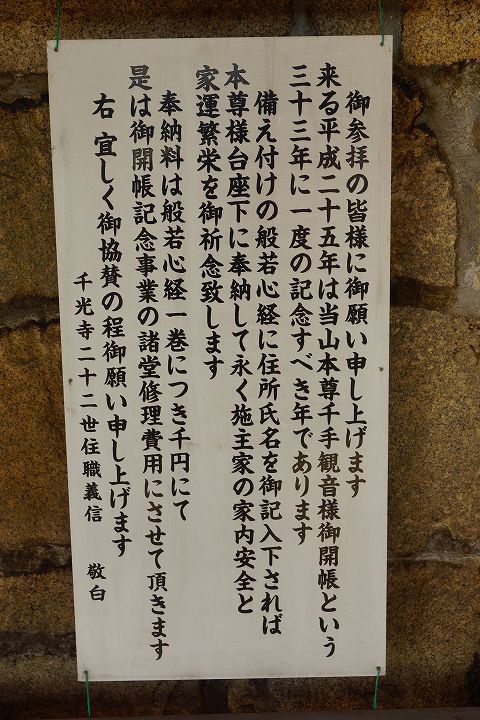 御参拝の皆様に御願い申し上げます
来る平成二十五年は当山本尊千手観音様御開帳という
三十三年に一度の記念すべき年であります
備え付けの般若心経に住所氏名を御記入下されば
本尊様台座下に奉納して永く施主家の家内安全と
家運繁栄を御祈念致します
奉納料は般若心経一巻につき千円にて
是は御開帳記念事業の諸堂修理費用にさせて頂きます
右 宜しく御協賛の程御願い申し上げます
千光寺二十二世住職義信 敬白